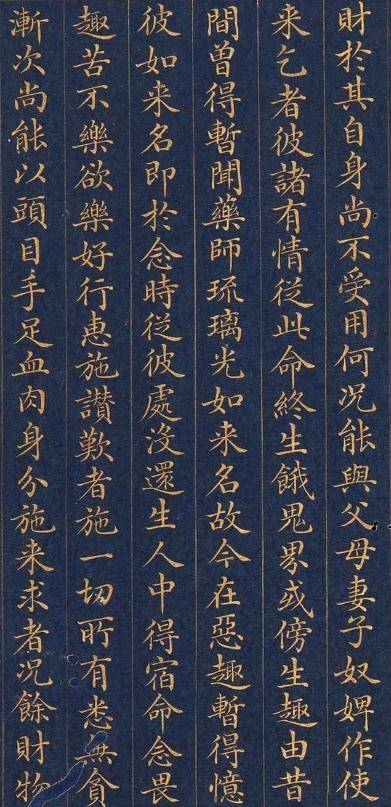 財於其自身尚不受用何況能與父母妻子奴婢作使
来乞者彼諸有情従此命終生餓鬼界或傍生趣由昔
間曽得暫聞藥師琉璃光如来名故今在惡趣暫得憶
彼如来名即於念時従彼處没還生人中得宿命念畏
趣苦不樂欲樂好行恵施讃歎者施一切所有悉無貪
漸次尚能以頭目手足血肉身分施来求者況餘財物